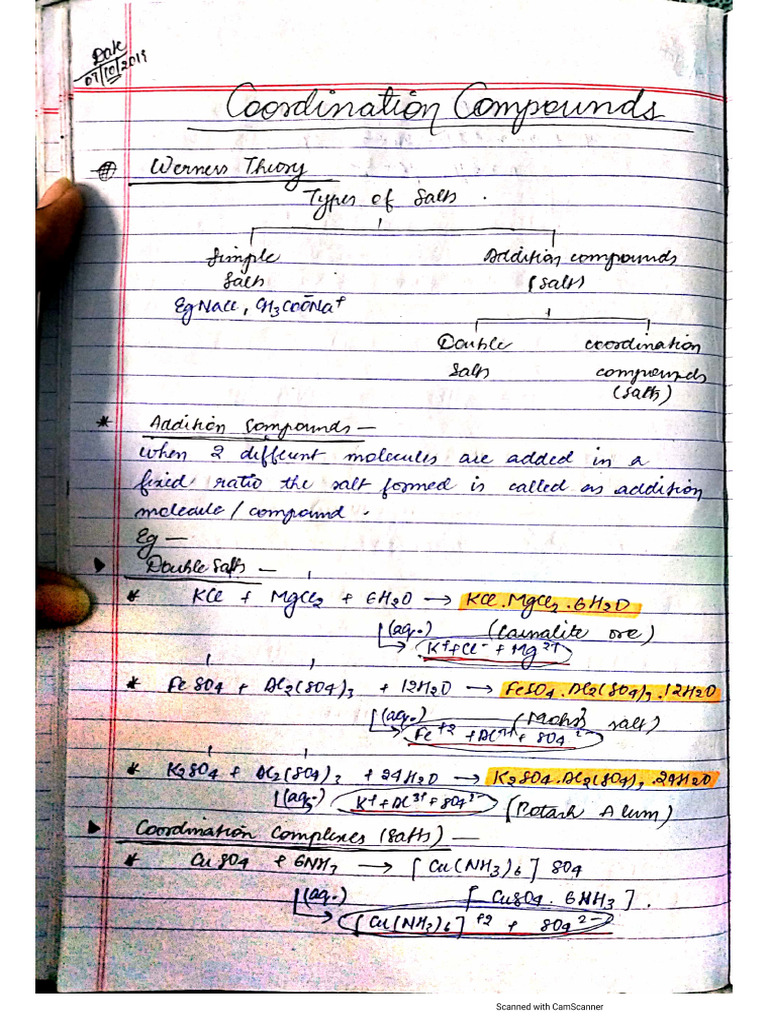 Date
07/10/2019
Coordination Compounds
Werners Theory
Types of Salts .
Simple Addition compounds
Salts (Salts)
Eg NaCl, CH3COO⁻Na⁺
Double coordination
Salts compounds
(Salts)
* Addition Compounds —
when 2 different molecules are added in a
fixed ratio the salt formed is called as addition
molecule / compound .
Eg —
Double Salts —
* KCl + MgCl2 + 6H2O → KCl.MgCl2.6H2O
(aq.) (Carnalite ore)
K⁺+Cl⁻ + Mg²⁺
* FeSO4 + Al2(SO4)3 + 12H2O → FeSO4.Al2(SO4)3.12H2O
(aq.) (Mohs salt)
Fe⁺² + Al³⁺ + SO4²⁻
* K2SO4 + Al2(SO4)3 + 24H2O → K2SO4.Al2(SO4)3.24H2O
(aq.) K⁺ + Al³⁺ + SO4²⁻ (Potash Alum)
Coordination Complexes (Salts) —
* CuSO4 + 6NH3 → [Cu(NH3)6] SO4
(aq.) [CuSO4. 6NH3] .
[Cu(NH3)6]⁺² + SO4²⁻
Scanned with CamScanner